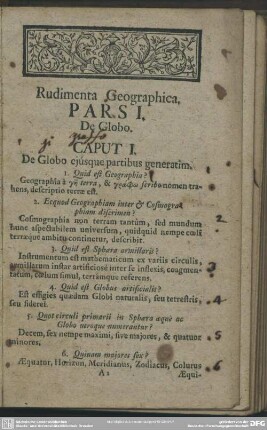 Rudimenta Geographica.
PARS I.
De Globo.
CAPUT I.
De Globo ejusque partibus generatim.
1. Quid est Geographia?
Geographia à γῆ terra, & γραφω scribo nomen tra-
hens, descriptio terræ est.
2. Ecquod Geographiam inter & Cosmogra-
phiam discrimen?
Cosmographia non terram tantùm, sed mundum
hunc aspectabilem universum, quidquid nempe cœli
terræque ambitu continetur, describit.
3. Quid est Sphæra artificialis?
Instrumentum est mathematicum ex variis circulis,
armillarum instar artificiosè inter se insertis, coagmen-
tatum, cœlum simul, terrámque referens.
4. Quid est Globus artificialis?
Est effigies quædam Globi naturalis, seu terrestris,
seu siderei.
5. Quot circuli primarii in Sphæra æquè ac
Globo utroque numerantur?
Decem, sex nempe maximi, sive majores, & quatuor
minores.
6. Quinam majores sex?
Æquator, Horizon, Meridianus, Zodiacus, Colurus
A 2 Æqui-
2
3
4
5
6